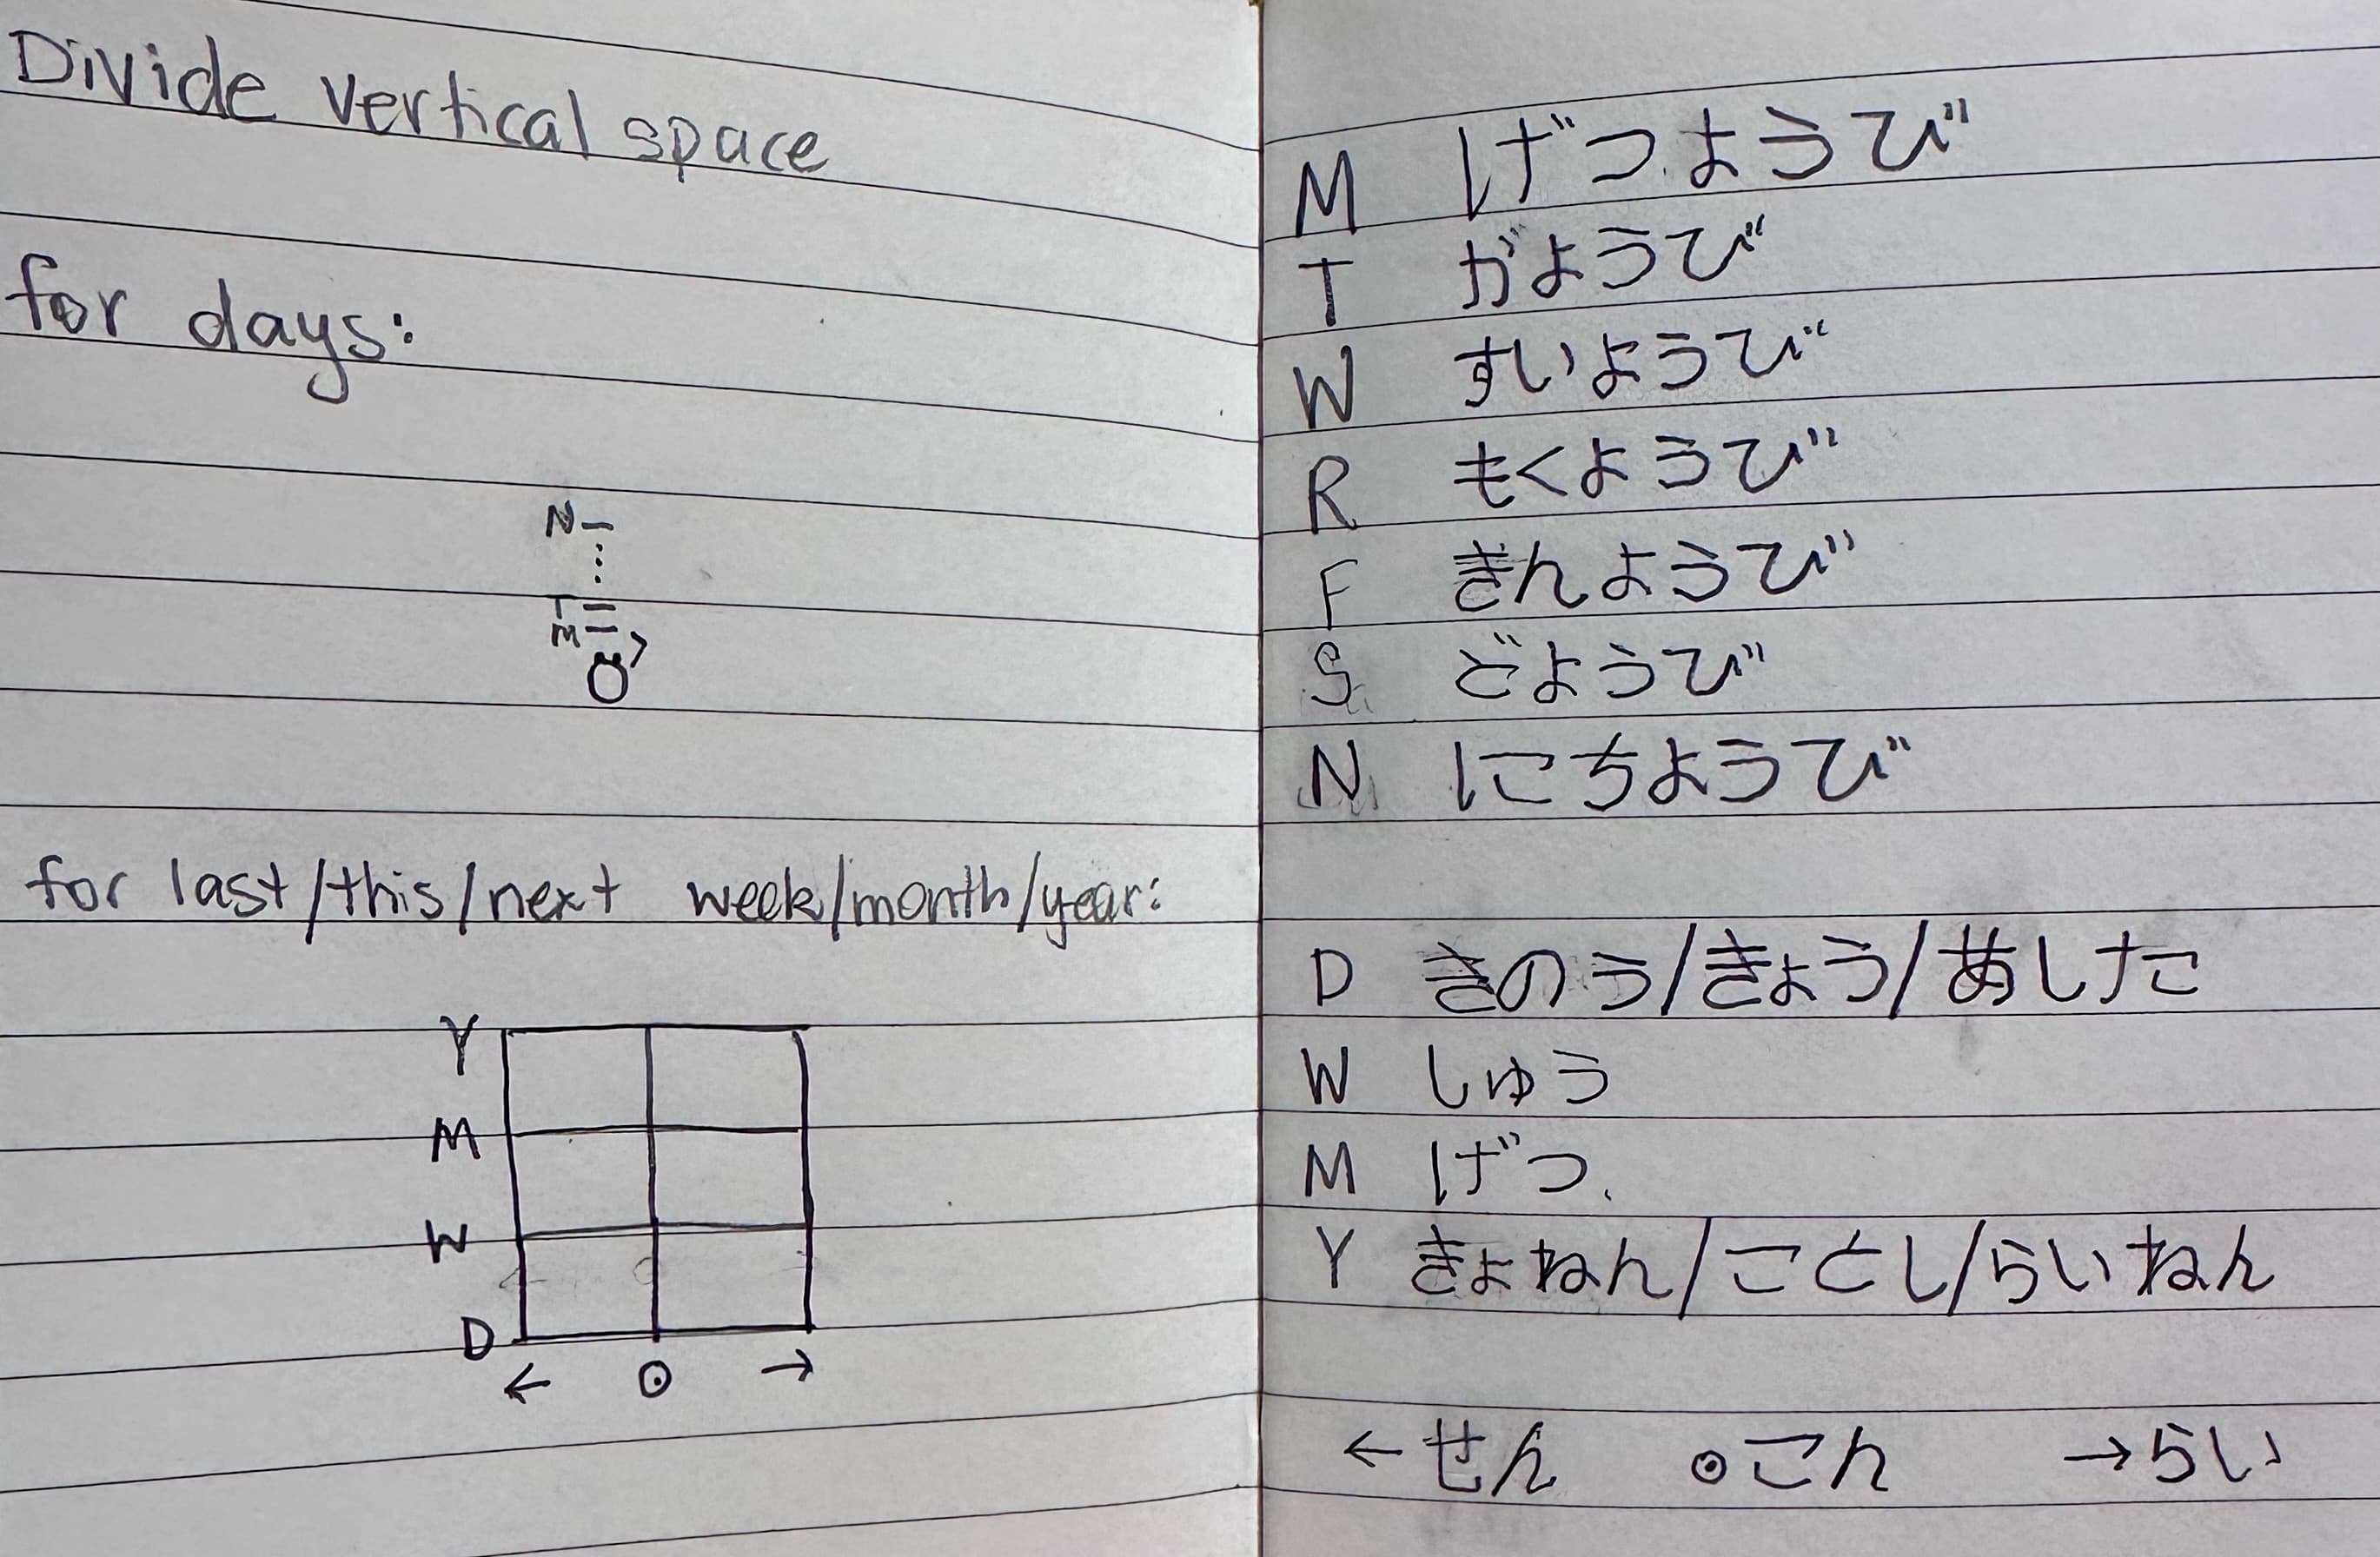 Divide vertical space
for days:
N
T
M
for last/this/next week/month/year:
Y
M
W
D
← ⊙ →
M げつようび
T がようび
W すいようび
R もくようび
F きんようび
S どようび
N にちようび
D きのう/きょう/あした
W しゅう
M げつ
Y きょねん/ことし/らいねん
← せん ⊙ こん → らい